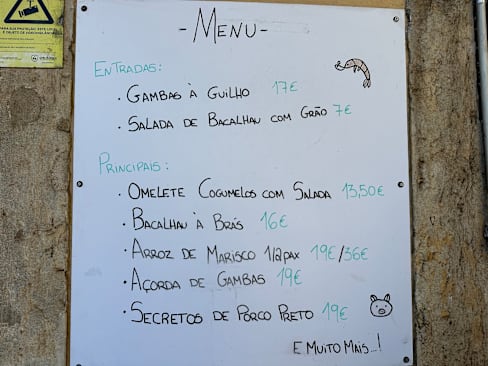 - MENU -
ENTRADAS:
· GAMBAS À GUILHO 17€
· SALADA DE BACALHAU COM GRÃO 7€
PRINCIPAIS:
· OMELETE COGUMELOS COM SALADA 13,50€
· BACALHAU À BRÁS 16€
· ARROZ DE MARISCO 1/2PAX 19€/36€
· AÇORDA DE GAMBAS 19€
· SECRETOS DE PORCO PRETO 19€
E MUITO MAIS...!